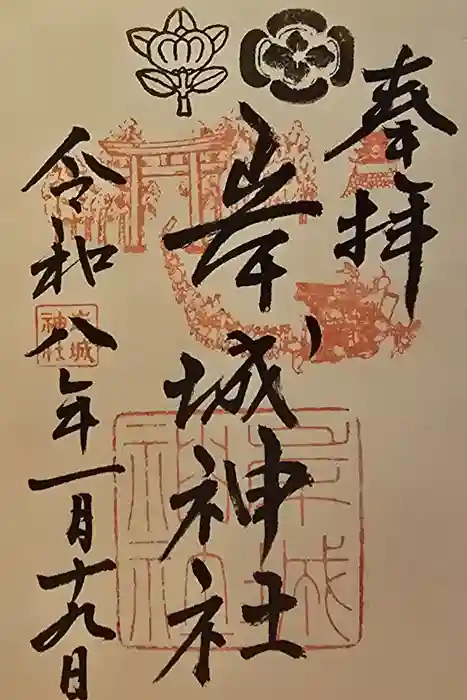 奉拝
岸城神社
令和八年一月十九日
岸城
神社
岸城
神社